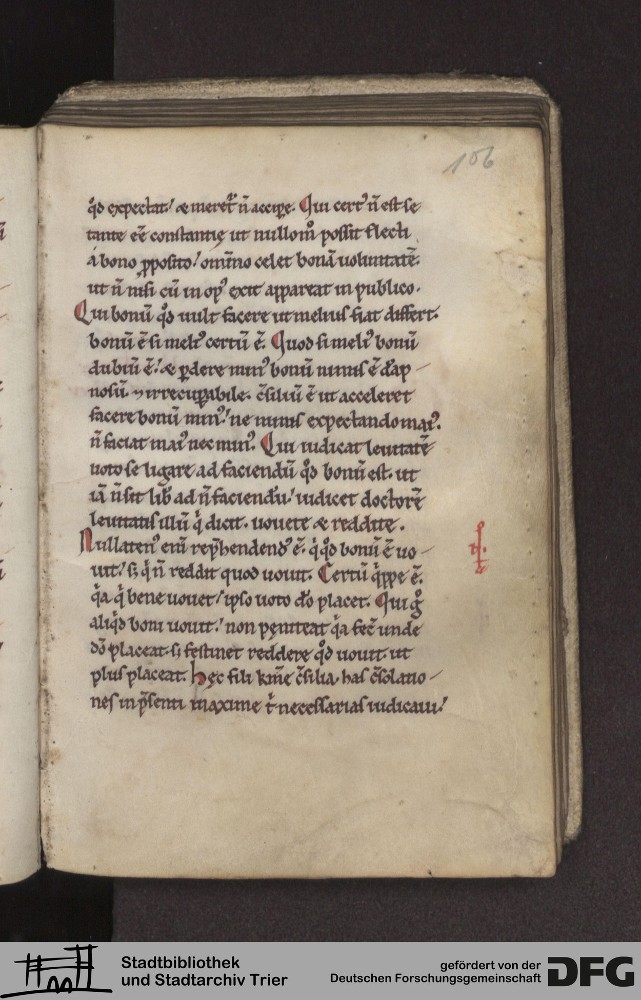 106
q̊d expectat! & meret᷑ n̄ accipe. Qui cert᷑ n̄ est se
tante eē constantię ut nullom̊ possit flecti
á bono ꝓposito! omĩno celet bonā uoluntatē.
ut n̄ nisi cū in op᷒ exit appareat in publico.
Qui bonū q̊d uult facere ut melius fiat differt.
bonū ē si meli᷒ certū ē. Quod si meli᷒ bonū
dubiū ē! & ꝑdere min᷒ bonū nimis ē dāp-
nosū ⁊ irrecuꝑabile. c̄siliū ē ut acceleret
facere bonū min᷒! ne nimis expectando mai᷒.
n̄ faciat mai᷒ nec min᷒. Qui iudicat leuitatē
uoto se ligare ad faciendū q̊d bonū est. ut
iā n̄ sit lib̄ ad n̄ faciendū! iudicet doctorē
leuitatis illū qͥ dicit. uouete & reddite.
Nullaten᷒ eni᷒ rep̄hendend᷒ ē. qͥ q̊d bonū ē uo-
uit! sꝫ qͥ n̄ reddit quod uouit. Certū qͥppe ē.
qᷓa qͥ bene uouet! ipso uoto dō placet. Qui g̊
aliqͥd boni uouit! non pęniteat qͥa fec̄ unde
dō placeat. sꝫ festinet reddere q̊d uouit. ut
plus placeat. Hęc fili kīme c̄silia. has c̄solatio-
nes in p̄senti maxime tͥ necessarias iudicaui!
Stadtbibliothek
und Stadtarchiv Trier
gefördert von der
Deutschen Forschungsgemeinschaft
DFG